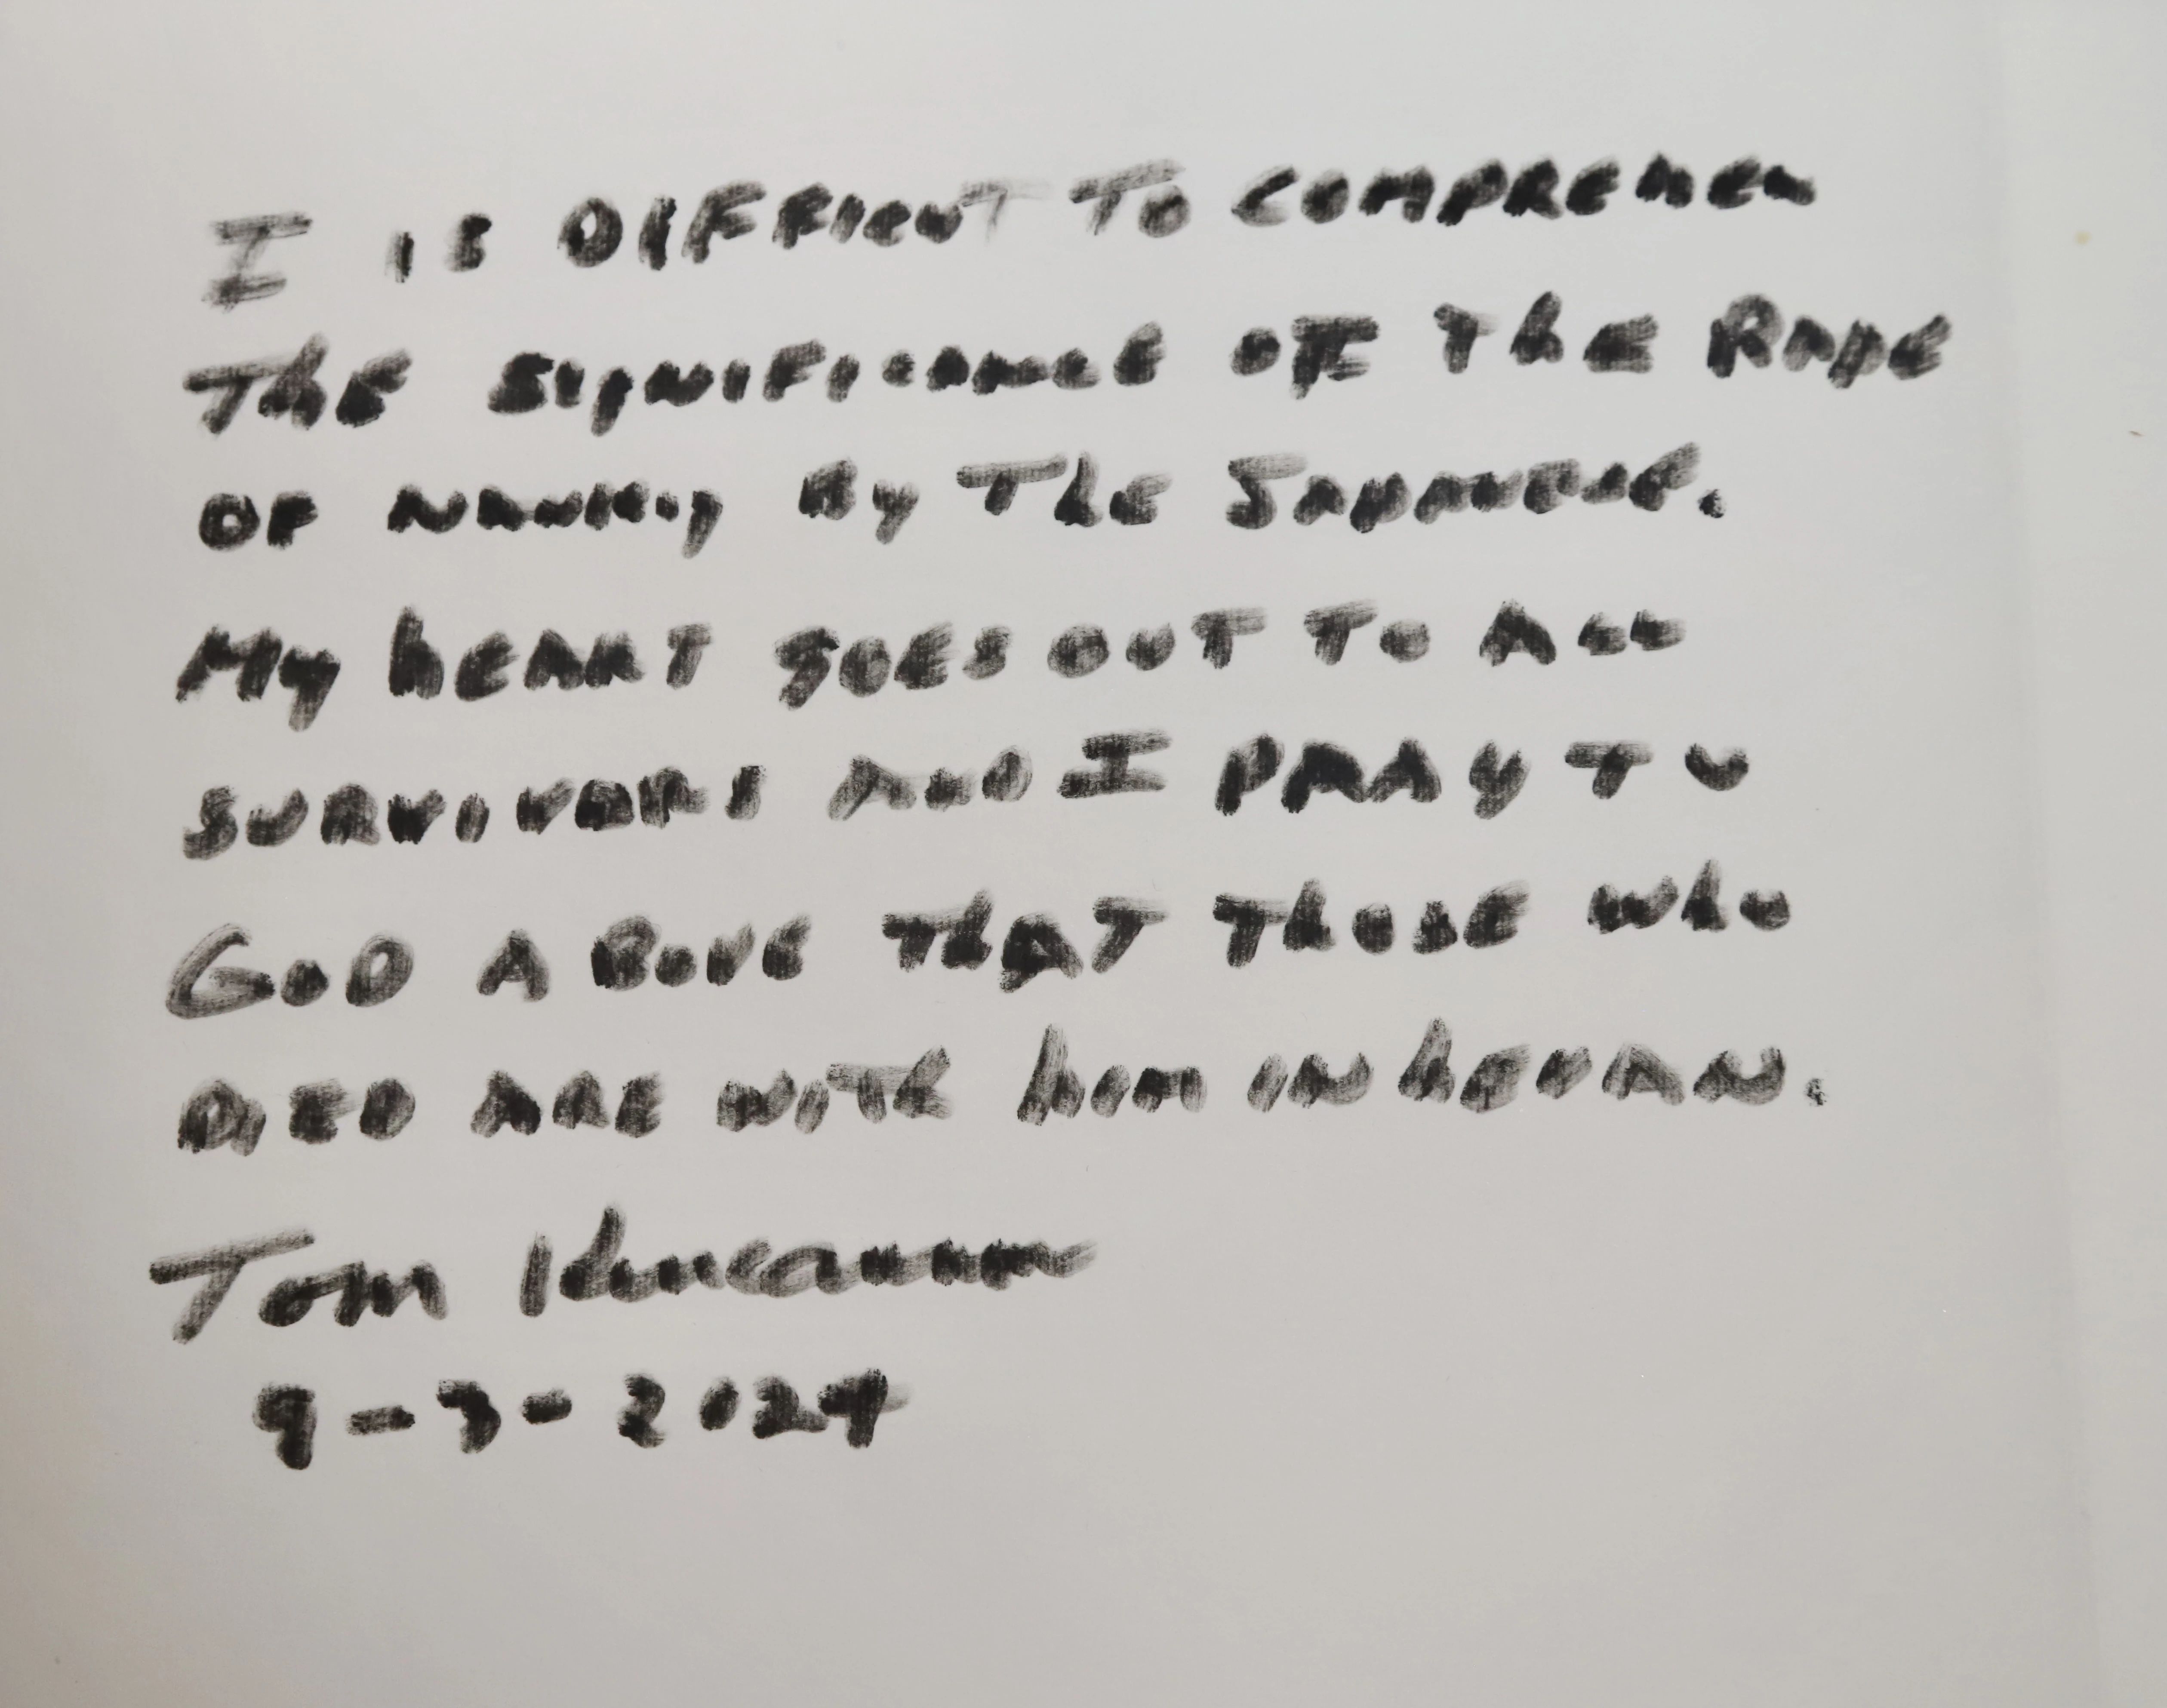 I IS DIFFICULT TO COMPREHEN
The SIgNIFICANCE OF The RAPE
OF NANKIg By The JAPANESE.
My hEART gOES OUT TO ALL
SURVIVORS AND I PRAY TO
GOD ABOVE ThAT ThOSE Who
DIED ARE WITh hIM IN hEVAN.
Tom
9-3-2024